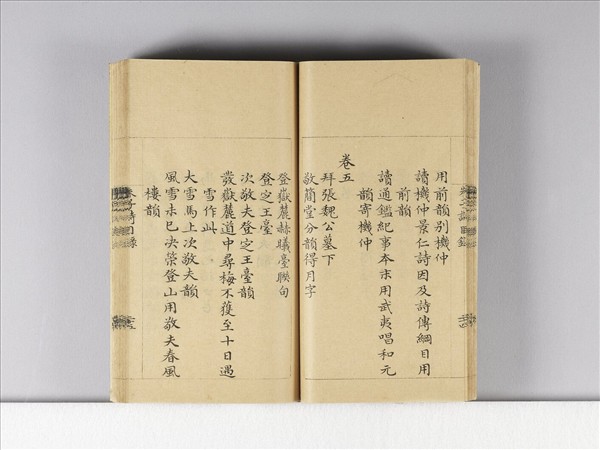 用前韻别機仲
讀機仲景仁詩因及詩傳綱目用
前韻
讀通鑑紀事本末用武夷唱和元
韻寄機仲
卷五
拜張魏公墓下
敬簡堂分韻得月字
登嶽麓赫曦臺聯句
登定王臺
次敬夫登定王臺韻
發嶽麓道中尋梅不獲至十日遇
雪作此
大雪馬上次敬夫韻
風雪未已决策登山用敬夫春風
樓韻